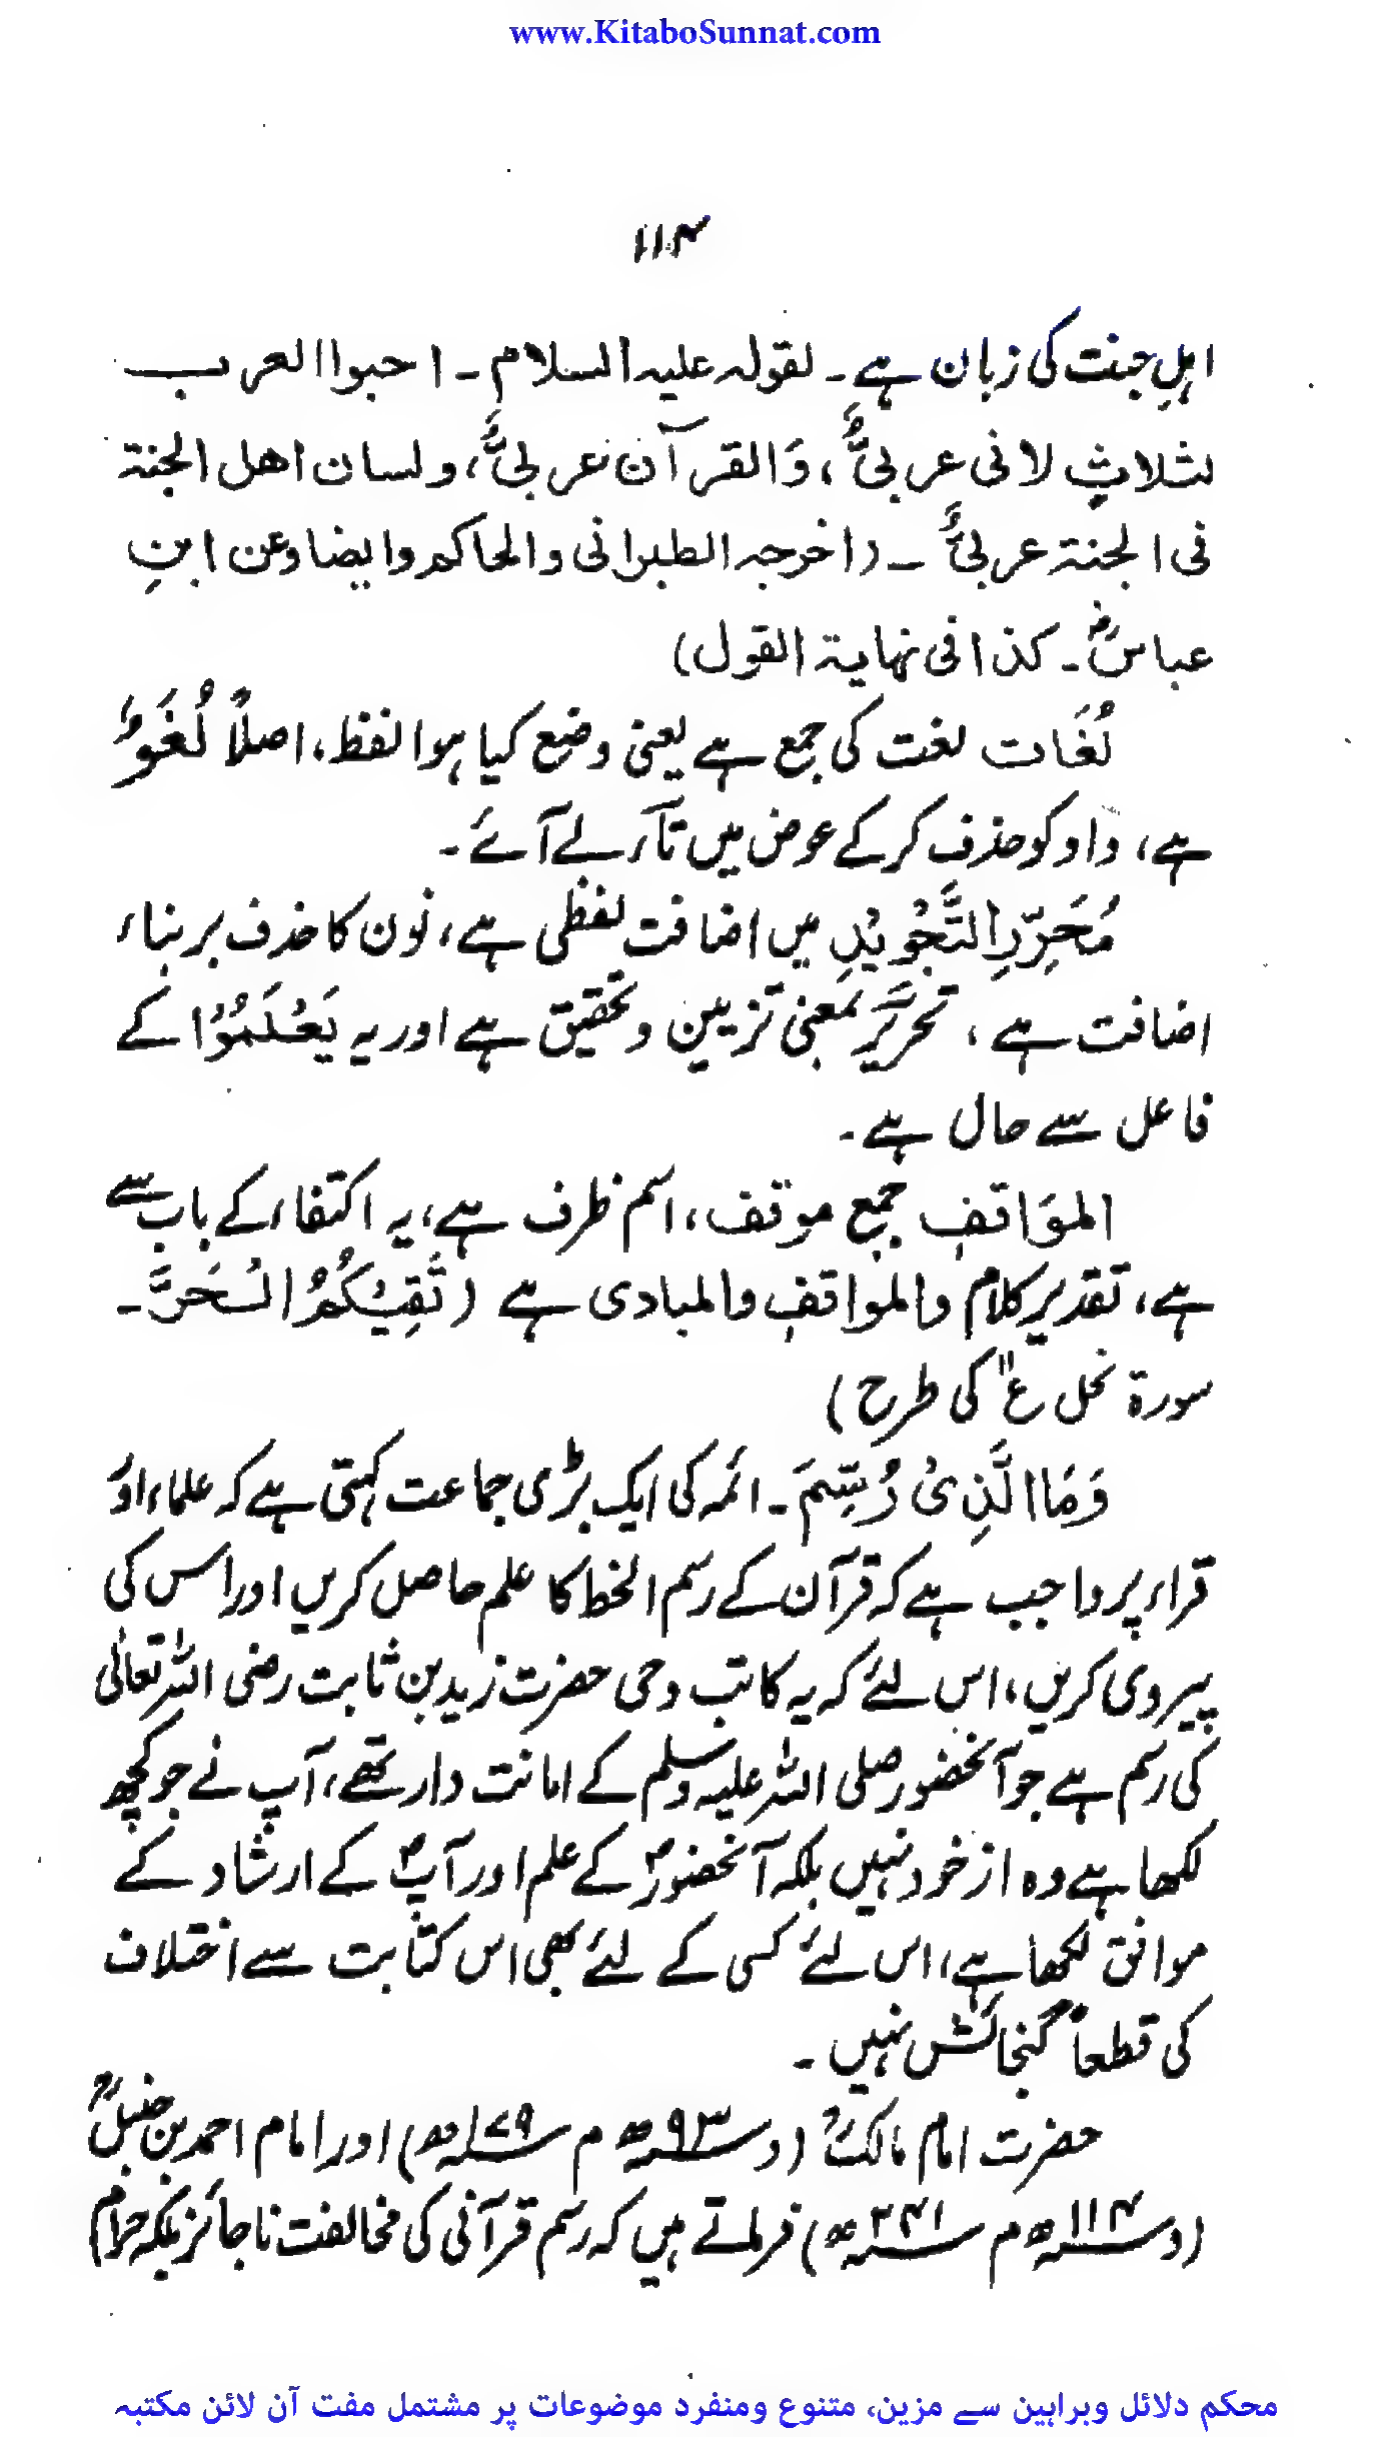 www.KitaboSunnat.com
۱۱۴
اہلِ جنت کی زبان ہے۔ لقولہ علیہ السلام۔ احبوا العرب
لثلاثٍ لانی عربیٌّ، وَالقرآن عربیٌّ، ولسان اھل الجنۃ
فی الجنۃ عربیٌّ ۔ (اخرجہ الطبرانی والحاکم وایضا وعن ابنِ
عباسؓ۔ کذا فی نہایۃ القول)
لُغَات لغت کی جمع ہے یعنی وضع کیا ہوا لفظ، اصلاً لُغَوٌ
ہے، واو کو حذف کر کے عوض میں تآء لے آئے۔
مُحَرِّرِالتَّجْوِیْدِ میں اضافت لفظی ہے، نون کا حذف بر بناء
اضافت ہے، تحریر بمعنی تزیین و تحقیق ہے اور یہ یَعْلَمُوْا کے
فاعل سے حال ہے۔
المَوَاقِفِ جمع موقف، اسم ظرف ہے، یہ اکتفاء کے باب سے
ہے، تقدیر کلام والمواقفِ والمبادی ہے (تَقِیْکُمُ الْحَرَّ۔
سورۃ نحل ع۱۱ کی طرح)
وَمَا الَّذِیْ رُسِّمَ۔ ائمہ کی ایک بڑی جماعت کہتی ہے کہ علماء اور
قراء پر واجب ہے کہ قرآن کے رسم الخط کا علم حاصل کریں اور اس کی
پیروی کریں، اس لئے کہ یہ کاتب وحی حضرت زید بن ثابت رضی اللہ تعالیٰ
کی رسم ہے جو آنحضور صلی اللہ علیہ وسلم کے امانت دار تھے، آپ نے جو کچھ
لکھا ہے وہ از خود نہیں بلکہ آنحضورؐ کے علم اور آپؐ کے ارشاد کے
موافق لکھا ہے، اس لئے کسی کے لئے بھی اس کتابت سے اختلاف
کی قطعاً گنجائش نہیں۔
حضرت امام مالکؒ (و ۹۳ھ م ۱۷۹ھ) اور امام احمد بن حنبلؒ
(و ۱۱۴ھ م ۲۴۱ھ) فرماتے ہیں کہ رسم قرآنی کی مخالفت ناجائز بلکہ حرام
محکم دلائل وبراہین سے مزین، متنوع ومنفرد موضوعات پر مشتمل مفت آن لائن مکتبہ